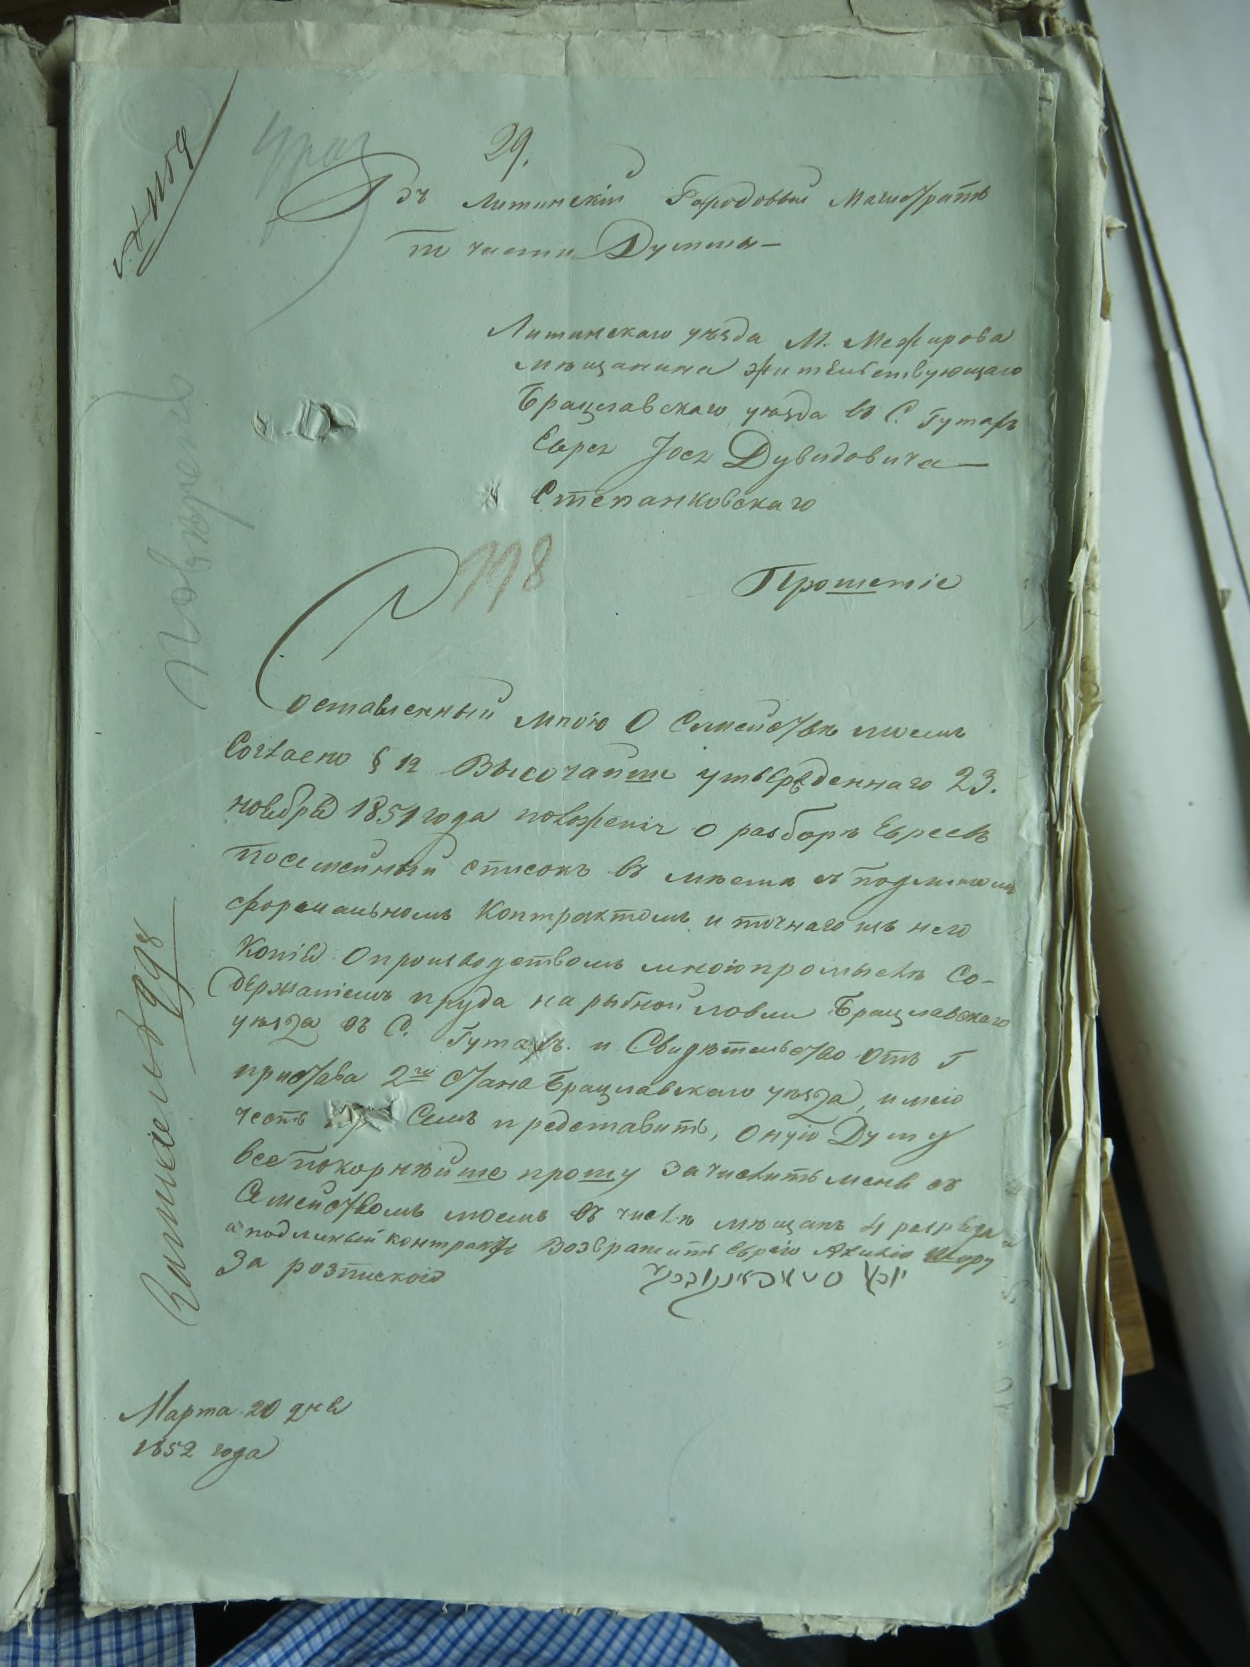 29.
Въ Литинскій Городовый Магистратъ
по части Думы
Литинскаго уѣзда М. Межирова
мѣщанина жительствующаго
Брацлавскаго уѣзда въ С. Гутахъ
ЕвреяJося Дувидовича
Степанковскаго
998
Прошеніе
Составленный мною О Семействѣ моемъ
Согласно § 12 Высочайше утвержденнаго 23.
ноября 1851 года положенія о разборѣ Евреевъ
посемейный списокъ въ мѣстѣ съ подлиннымъ
формальномъ контрактомъ и точнаго изъ него
копіею О производствомъ мною промыслъ Со-
держаніемъ пруда на рыбной ловли Брацлавскаго
уѣзда въ С. Гутахъ. и Свидѣтельство Отъ Г
пристава 2го Стана Брацлавскаго уѣзда, имѣю
честь при Семъ представить, Оную Думу
всепокорнѣйше прошу Зачислить меня съ
Семействомъ моемъ въ числѣ мѣщанъ 4 разряда
а подлинный контрактъ Возвратить Еврею Шору
За розпискою
Марта 20 дня
1852 года